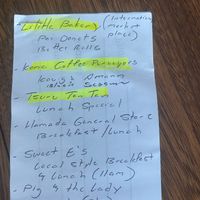 - Liliha Bakery (International
market
place)
Poi Donuts
Butter Rolls
- Kona Coffee Purveyors
Kouign Amann
Black Sesame
- Tsuru Ton Tan
Lunch Special
- Hamada General Store
Breakfast / Lunch
- Sweet E's
Local Style Breakfast
& Lunch (11am)
- Pig & the Lady